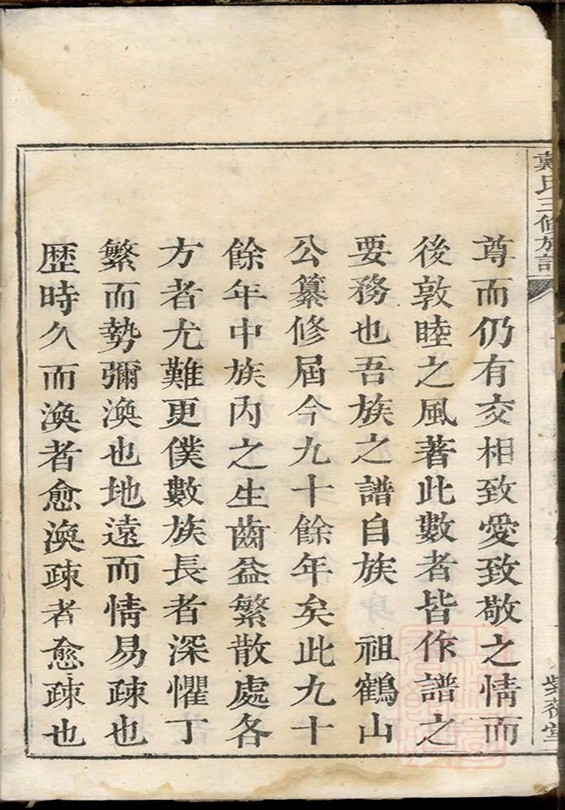 戴氏三修族譜
紫微堂
尊而仍有交相致愛致敬之情而
後敦睦之風著此數者皆作譜之
要務也吾族之譜自族　祖鶴山
公纂修屆今九十餘年矣此九十
餘年中族內之生齒益繁散處各
方者尤難更僕數族長者深懼丁
繁而勢彌渙也地遠而情易疎也
歷時久而渙者愈渙疎者愈疎也